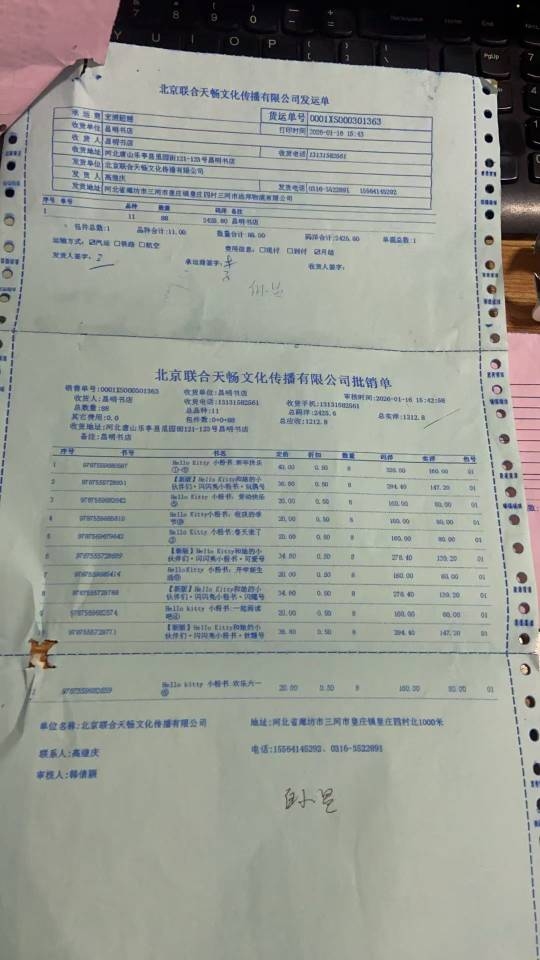 北京联合天畅文化传播有限公司发运单
承运商 宏润超越 货运单号 0001XS000301363
收货单位 昌明书店 打印时间 2026-01-16 15:43
收货人 昌明书店
收货地址 河北唐山乐亭县觅园街121-123号昌明书店 收货电话 13131582561
发货单位 北京联合天畅文化传播有限公司
发货人 高继庆
发货地址 河北省廊坊市三河市皇庄镇皇庄四村三河市远邦物流有限公司 发货电话 0316-5522891 15564145292
序号 单号 品种 数量 码洋 备注
1 11 88 2425.60 昌明书店
包件总数:1 品种合计:11.00 数量合计:88.00 码洋合计:2425.60 单据总数:1
运输方式:☑汽运 □铁路 □航空 费用信息:□现付 □到付 ☑月结
发货人签字: 承运商签字: 收货人签字:
北京联合天畅文化传播有限公司批销单
销售单号:0001XS000301363 收货单位:昌明书店 审核时间:2026-01-16 15:42:58
收货人:昌明书店 收货电话:13131582561 收货手机:13131582561
总数量:88 总品种:11 总码洋:2425.6 总实洋:1212.8
其它费用:0.0 包件数:0+0+88 总应收:1212.8
收货地址:河北唐山乐亭县觅园街121-123号昌明书店
备注:昌明书店
序号 书号 书名 定价 折扣 数量 码洋 实洋 包号
1 Hello Kitty 小粉书:新年快乐 40.00 0.50 8 320.00 160.00 01
2 【新版】Hello Kitty和她的小伙伴们·闪闪亮小粉书·玩偶号 36.80 0.50 8 294.40 147.20 01
Hello Kitty 小粉书:劳动快乐 20.00 0.50 8 160.00 80.00 01
Hello Kitty小粉书:收获的季节 20.00 0.50 8 160.00 80.00 01
Hello Kitty 小粉书:春天来了 20.00 0.50 8 160.00 80.00 01
6 【新版】Hello Kitty和她的小伙伴们·闪闪亮小粉书·可爱号 34.80 0.50 8 278.40 139.20 01
HelloKitty 小粉书:开学新生活 20.00 0.50 8 160.00 80.00 01
【新版】Hello Kitty和她的小伙伴们·闪闪亮小粉书·闪耀号 34.80 0.50 8 278.40 139.20 01
Hello kitty 小粉书:一起阅读吧 20.00 0.50 8 160.00 80.00 01
【新版】Hello Kitty和她的小伙伴们·闪闪亮小粉书 36.80 0.50 8 294.40 147.20 01
Hello kitty 小粉书:欢乐六一 20.00 0.50 8 160.00 80.00 01
单位名称:北京联合天畅文化传播有限公司 地址:河北省廊坊市三河市皇庄镇皇庄四村北1000米
联系人:高继庆 电话:15564145292、0316-5522891
审核人:韩倩颖